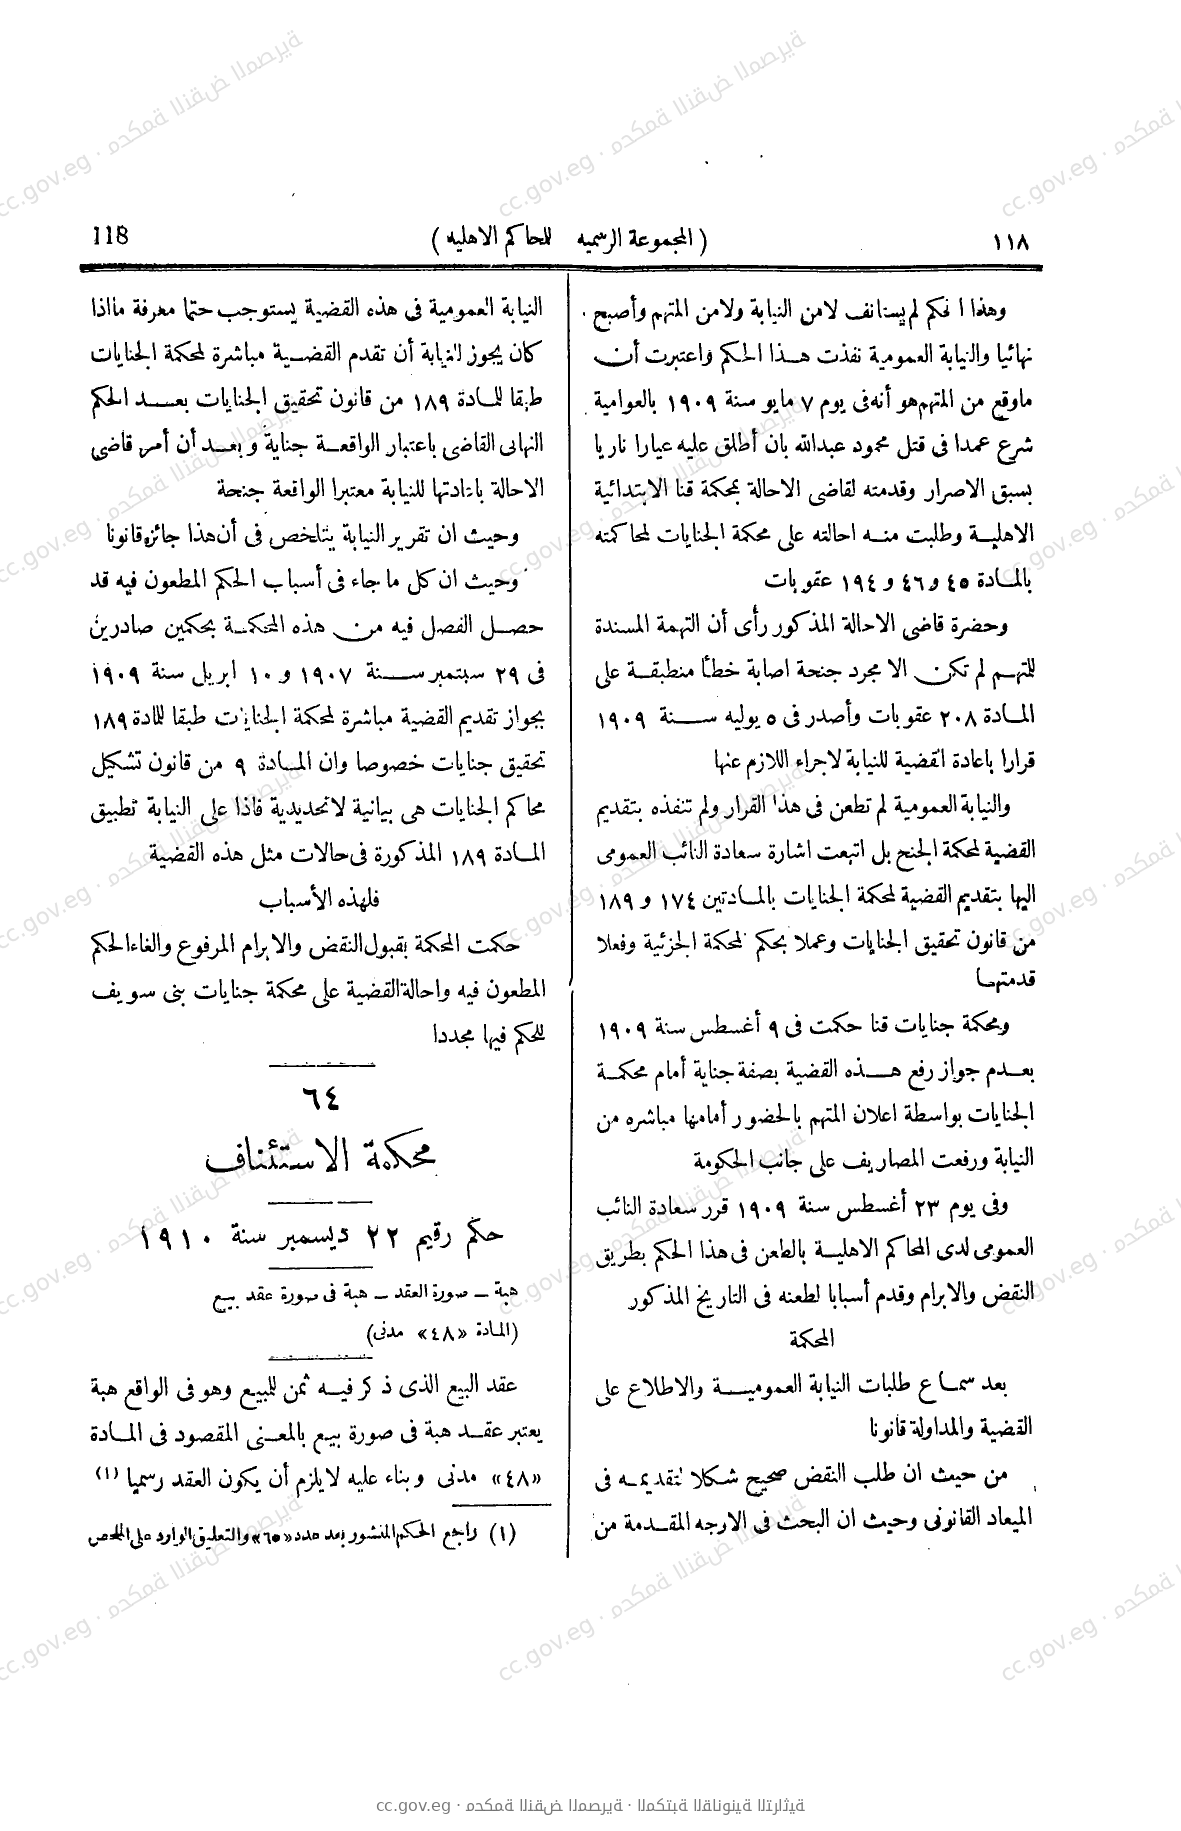 ١١٨
( المجموعة الرسميه للحاكم الاهليه )
118
وهذا الحكم لم يستانف لامن النيابة ولامن المتهم وأصبح
نهائيا والنيابة العمومية نفذت هذا الحكم واعتبرت أن
ماوقع من المتهم هو أنه فى يوم ٧ مايو سنة ١٩٠٩ بالعوامية
شرع عمدا فى قتل محمود عبدالله بان أطلق عليه عيارا ناريا
بسبق الاصرار وقدمته لقاضى الاحالة بمحكمة قنا الابتدائية
الاهلية وطلبت منه احالته على محكمة الجنايات لمحاكمته
بالمادة ٤٥ و٤٦ و ١٩٤ عقوبات
وحضرة قاضى الاحالة المذكور رأى أن التهمة المسندة
للمتهم لم تكن الا مجرد جنحة اصابة خطأ منطبقة على
المادة ٢٠٨ عقوبات وأصدر فى ٥ يوليه سنة ١٩٠٩
قرارا باعادة القضية للنيابة لاجراء اللازم عنها
والنيابة العمومية لم تطعن فى هذا القرار ولم تنفذه بتقديم
القضية لمحكمة الجنح بل اتبعت اشارة سعادة النائب العمومى
اليها بتقديم القضية لمحكمة الجنايات بالمادتين ١٧٤ و ١٨٩
من قانون تحقيق الجنايات وعملا بحكم لمحكمة الجزئية وفعلا
قدمتها
ومحكمة جنايات قنا حكمت فى ٩ أغسطس سنة ١٩٠٩
بعدم جواز رفع هذه القضية بصفة جناية أمام محكمة
الجنايات بواسطة اعلان المتهم بالحضور أمامها مباشره من
النيابة ورفعت المصاريف على جانب الحكومة
وفى يوم ٢٣ أغسطس سنة ١٩٠٩ قرر سعادة النائب
العمومى لدى المحاكم الاهلية بالطعن فى هذا الحكم بطريق
النقض والابرام وقدم أسبابا لطعنه فى التاريخ المذكور
المحكمة
بعد سماع طلبات النيابة العمومية والاطلاع على
القضية والمداولة قانونا
من حيث ان طلب النقض صحيح شكلا لتقديمه فى
الميعاد القانونى وحيث ان البحث فى الاوجه المقدمة من
النيابة العمومية فى هذه القضية يستوجب حتما معرفة مااذا
كان يجوز للنيابة أن تقدم القضية مباشرة لمحكمة الجنايات
طبقا للمادة ١٨٩ من قانون تحقيق الجنايات بعد الحكم
النهائى القاضى باعتبار الواقعة جناية وبعد أن أمر قاضى
الاحالة باعادتها للنيابة معتبرا الواقعة جنحة
وحيث ان تقرير النيابة يتلخص فى أن هذا جائز قانونا
وحيث ان كل ما جاء فى أسباب الحكم المطعون فيه قد
حصل الفصل فيه من هذه المحكمة بحكمين صادرين
فى ٢٩ سبتمبر سنة ١٩٠٧ و ١٠ ابريل سنة ١٩٠٩
بجواز تقديم القضية مباشرة لمحكمة الجنايات طبقا للمادة ١٨٩
تحقيق جنايات خصوصا وان المادة ٩ من قانون تشكيل
محاكم الجنايات هى بيانية لاتحديدية فاذا على النيابة تطبيق
المادة ١٨٩ المذكورة فى حالات مثل هذه القضية
فلهذه الأسباب
حكمت المحكمة بقبول النقض والابرام المرفوع والغاء الحكم
المطعون فيه واحالة القضية على محكمة جنايات بنى سويف
للحكم فيها مجددا
٦٤
محكمة الاستئناف
حكم رقيم ٢٢ ديسمبر سنة ١٩١٠
هبة – صورة العقد – هبة فى صورة عقد بيع
(المادة «٤٨» مدنى)
عقد البيع الذى ذكر فيه ثمن للبيع وهو فى الواقع هبة
يعتبر عقد هبة فى صورة بيع بالمعنى المقصود فى المادة
«٤٨» مدنى وبناء عليه لايلزم أن يكون العقد رسميا (١)
(١) راجع الحكم المنشور بعد عدد «٦٥» والتعليق الوارد على الملخص
cc.gov.eg · محكمة النقض المصرية · المكتبة القانونية التراثية